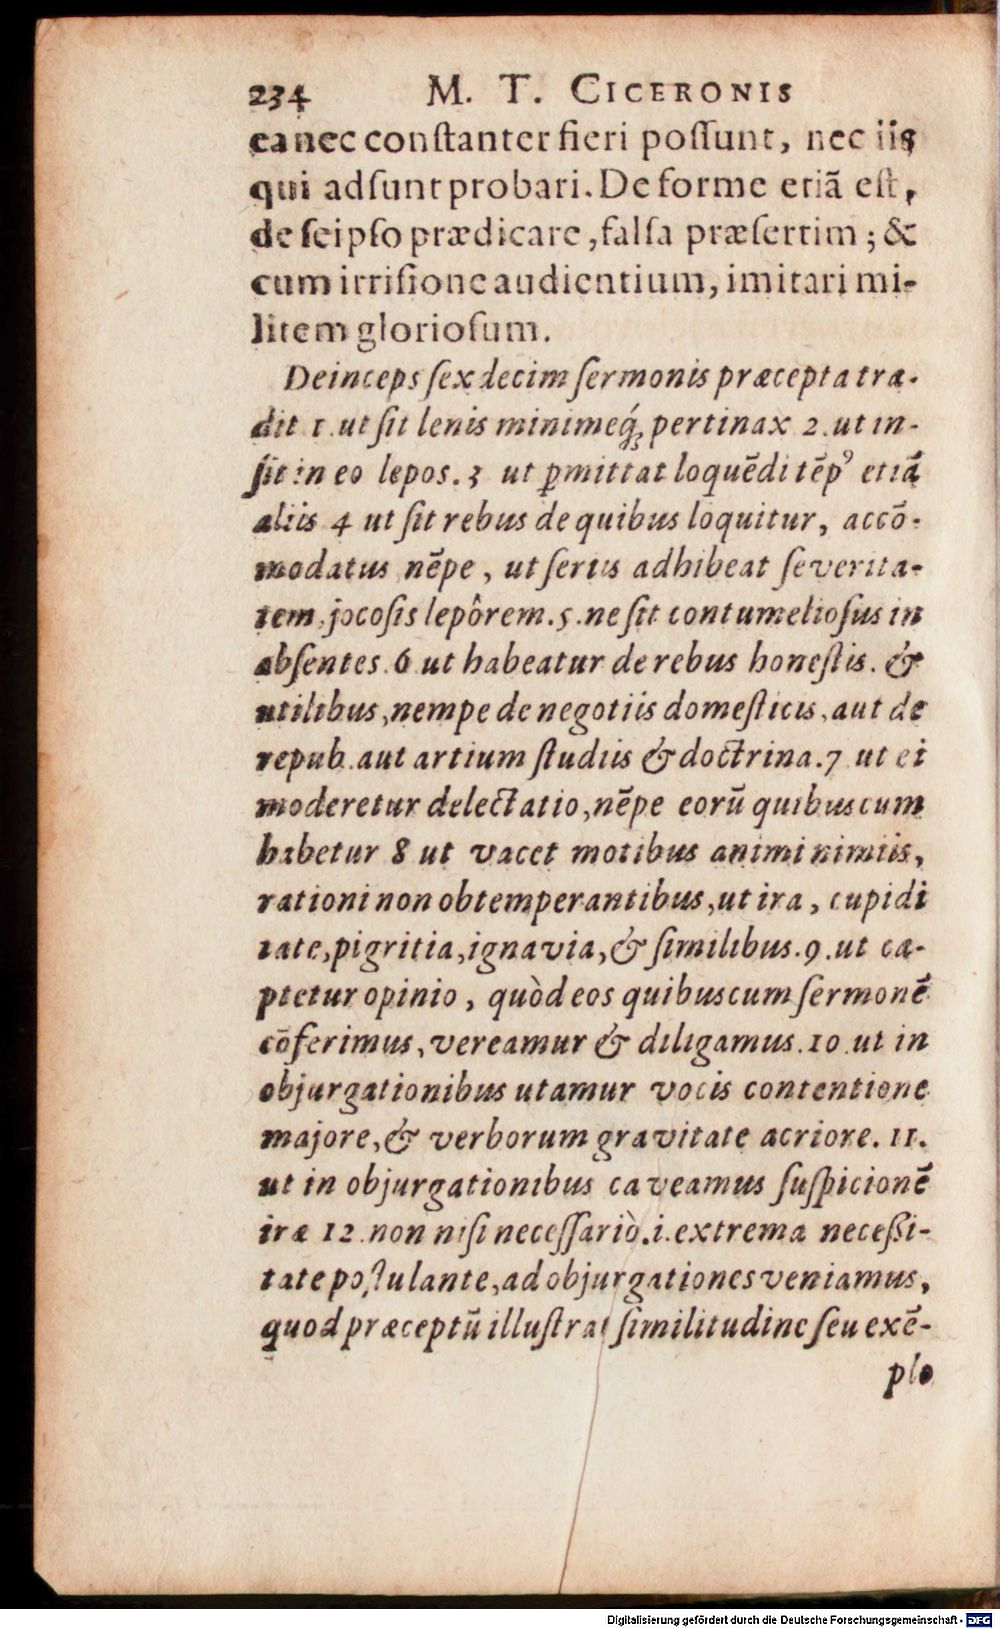 234 M. T. CICERONIS
ea nec conſtanter fieri poſſunt, nec iis
qui adſunt probari. De forme etiã eſt,
de ſeipſo prædicare, falſa præſertim; &
cum irriſione audientium, imitari mi-
litem glorioſum.
Deinceps ſexdecim ſermonis præcepta tra-
dit 1. ut ſit lenis minimeq́; pertinax 2. ut in-
ſit in eo lepos. 3 ut ꝑmittat loquẽdi tẽpꝰ etiã
aliis 4 ut ſit rebus de quibus loquitur, accõ-
modatus nẽpe, ut ſeriis adhibeat ſeverita-
tem, jocoſis lepôrem. 5. ne ſit contumelioſus in
abſentes. 6 ut habeatur de rebus honeſtis. &
utilibus, nempe de negotiis domeſticis, aut de
repub. aut artium ſtudiis & doctrina. 7 ut ei
moderetur delectatio, nẽpe eorũ quibuscum
habetur 8 ut vacet motibus animi nimiis,
rationi non obtemperantibus, ut ira, cupidi
tate, pigritia, ignavia, & ſimilibus. 9. ut ca-
ptetur opinio, quòd eos quibuscum ſermonẽ
cõferimus, vereamur & diligamus. 10. ut in
objurgationibus utamur vocis contentione
majore, & verborum gravitate acriore. 11.
ut in objurgationibus caveamus ſuſpicionẽ
iræ 12. non niſi neceſſariò. i. extrema neceßi-
tate poſtulante, ad objurgationes veniamus,
quod præceptũ illuſtrat ſimilitudine ſeu exẽ-
plo
Digitalisierung gefördert durch die Deutsche Forschungsgemeinschaft - DFG